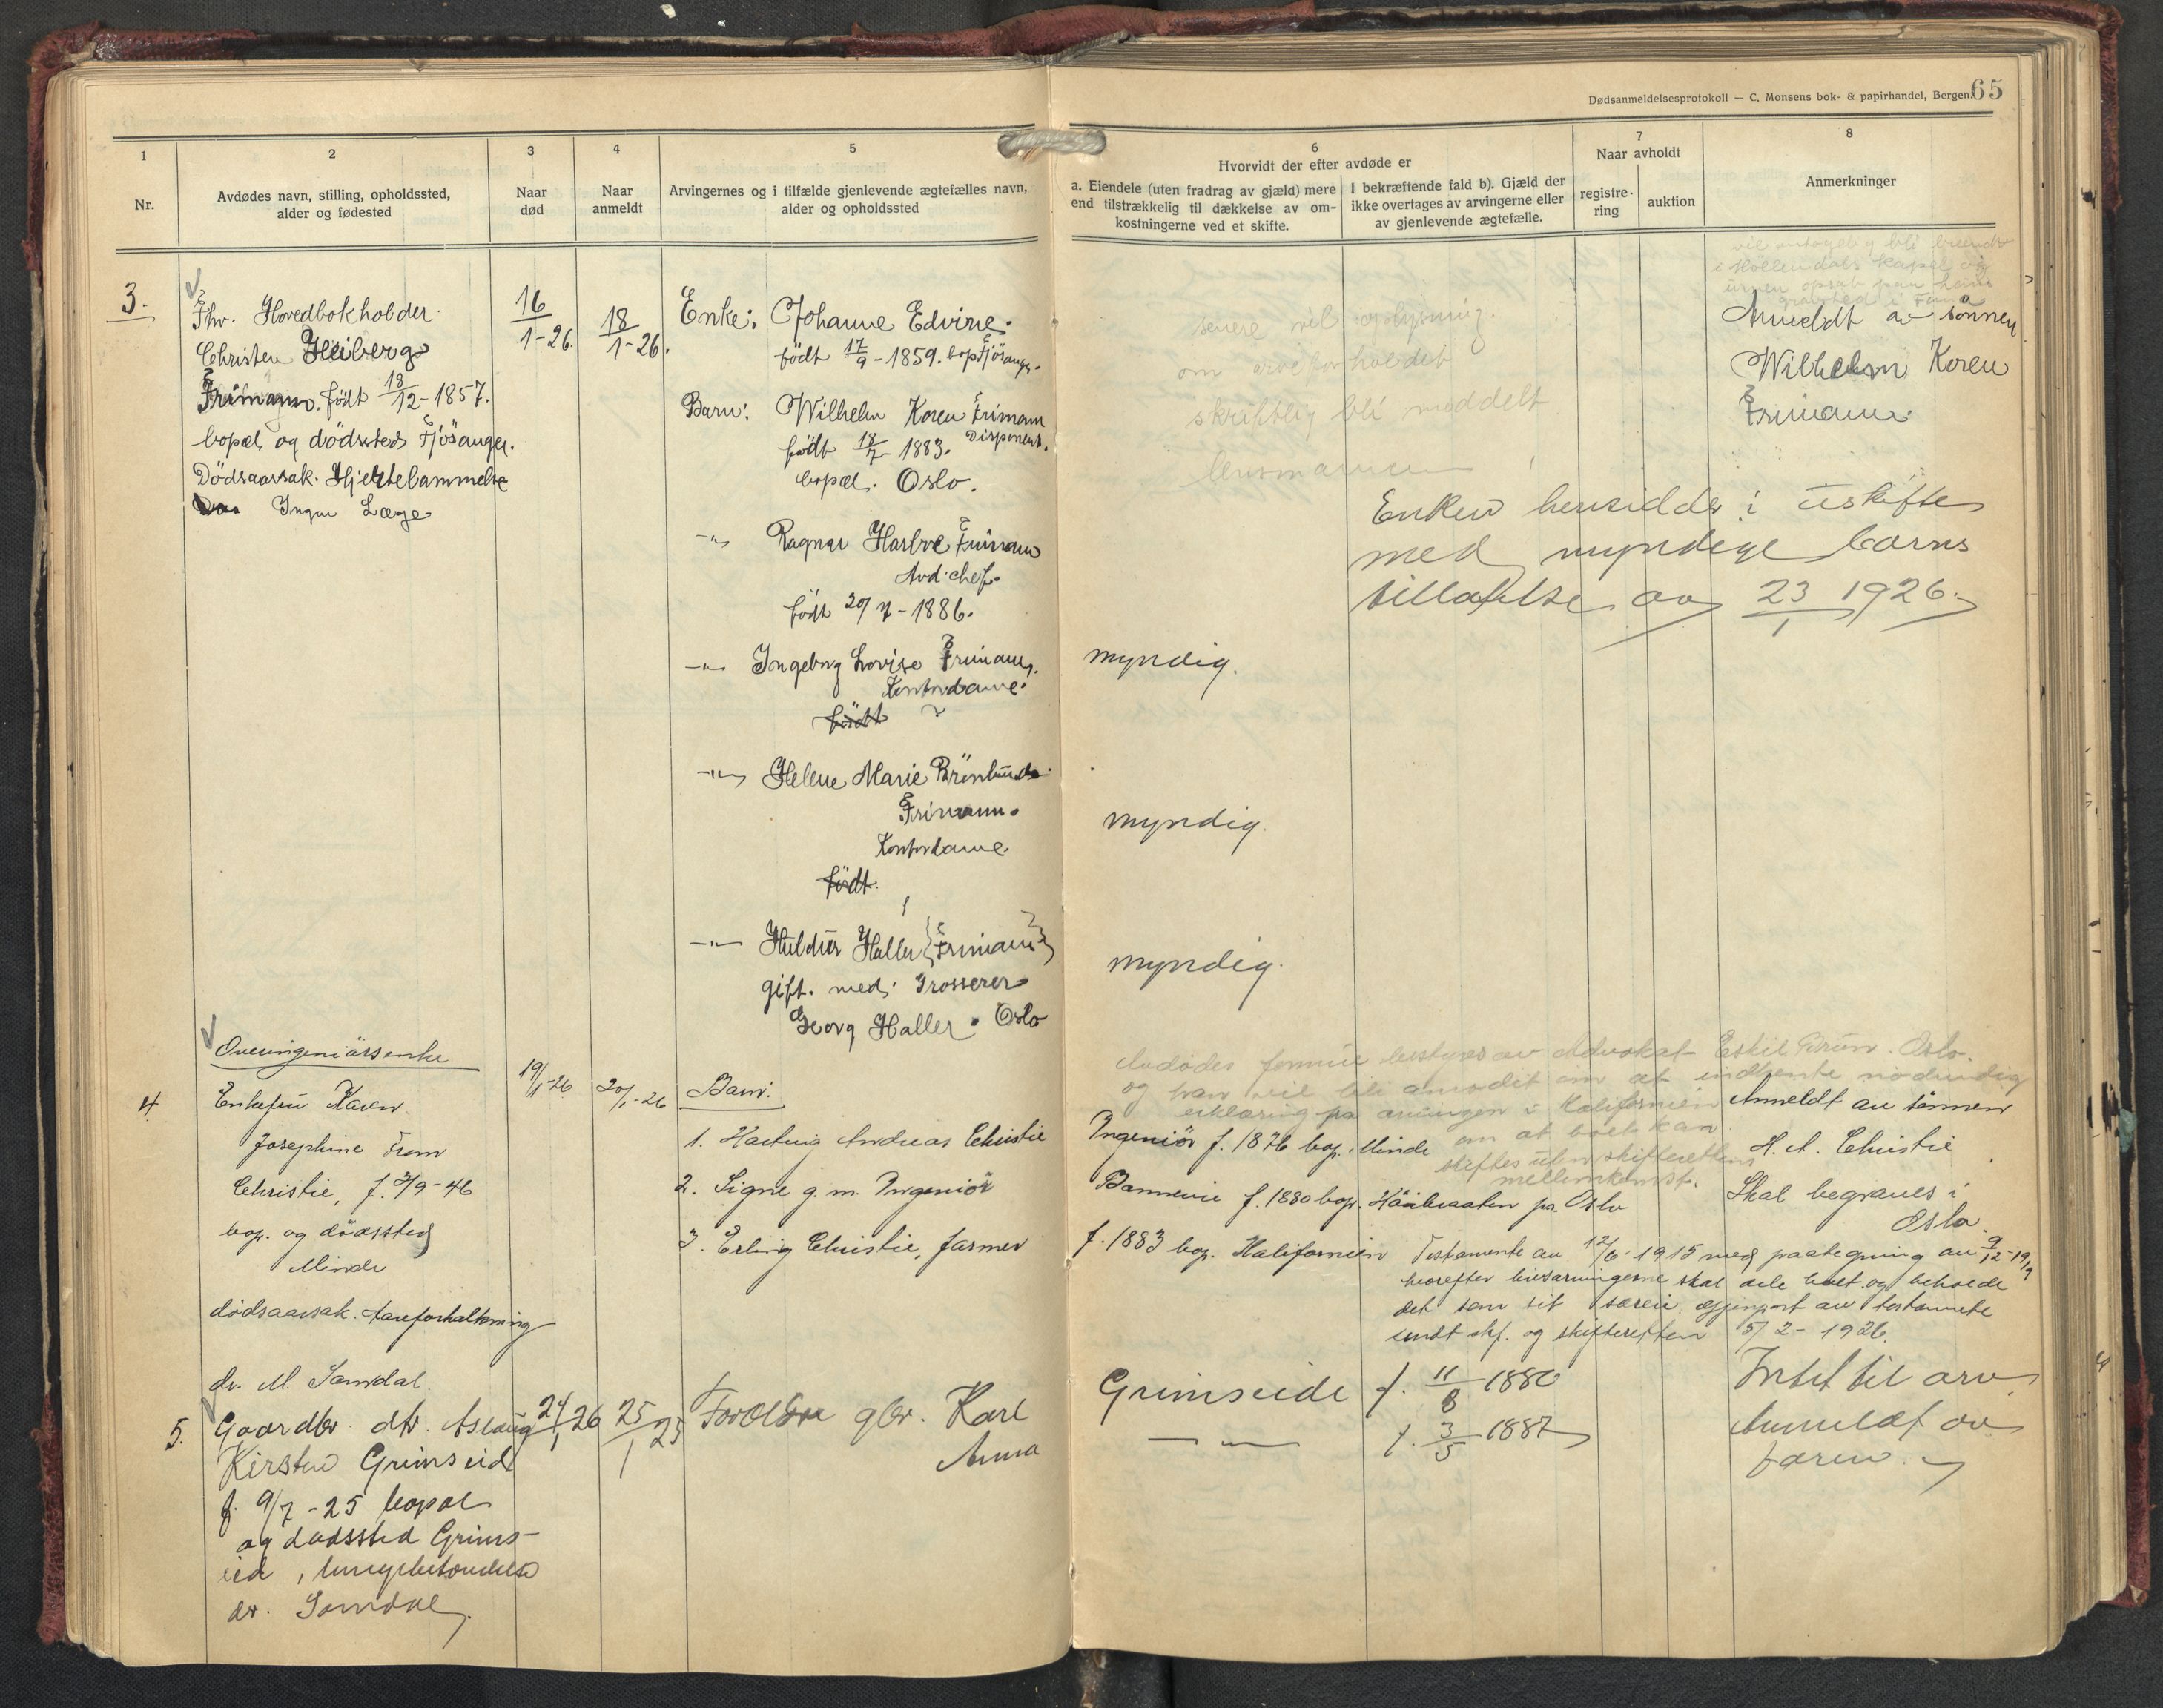 Dødsanmeldelsesprotokoll — C. Monsens bok- & papirhandel, Bergen.
65
1
Nr.
2
Avdødes navn, stilling, opholdssted,
alder og fødested
3
Naar
død
4
Naar
anmeldt
5
Arvingernes og i tilfælde gjenlevende ægtefælles navn,
alder og opholdssted
6
Hvorvidt der efter avdøde er
a. Eiendele (uten fradrag av gjæld) mere
end tilstrækkelig til dækkelse av om-
kostningerne ved et skifte.
I bekræftende fald b). Gjæld der
ikke overtages av arvingerne eller
av gjenlevende ægtefælle.
7
Naar avholdt
registre-
ring
auktion
8
Anmerkninger
3.
Fhv. Hovedbokholder.
Christen Heiberg
Frimann. født 18/12-1857.
bopæl og dödssted Fjösanger.
Dödsaarsak. Hjertelammelse
Ingen Læge
16/1-26.
18/1-26.
Enke: Johanne Edvine.
født 17/9-1859. bop Fjösanger.
Barn: Wilhelm Koren Frimann
født 18/7 1883. Disponent.
bopæl. Oslo.
-"- Ragnar Frimann
Avd. chef.
født 20/7-1886.
-"- Ingeborg Lovise Frimann.
Kontordame.
födt
-"- Helene Marie
Frimann.
Kontordame
födt.
-"- Haller (Frimann)
gift. med. Grosserer
Georg Haller. Oslo
senere vil oplysning
om arveforholdet
skriftlig bli meddelt
lensmannen
vil antagelig bli brændt
i Möllendals kapel og
urnen opsat paa hans
gravsted i Fana
Anmeldt av sönnen
Wilhelm Koren
Frimann.
Enken hensidder i uskifte
med myndige barns
tillatelse av 23/1 1926.
myndig.
myndig.
myndig.
4
Overingeniörsenke
Enkefru Karen
Josephine From
Christie, f. 2/9-46
bop. og dödssted
Minde
dödsaarsak. Aareforkalkning
dr. M. Samdal.
19/1-26
20/1-26
Barn:
1. Hartvig Andreas Christie
2. Signe g. m. Ingeniör
3. Erling Christie, farmer
Avdödes formue bestyres av Advokat Eskil Brun. Oslo.
og han vil bli anmodet om at indhente nödvendig
erklæring fra arvingen i Kalifornien
om at boet kan
skiftes uten skifterettens
mellemkomst.
Ingeniör f. 1876 bop. Minde
f. 1880 bop. pr. Oslo
f. 1883 bop. Kalifornien
Anmeldt av sönnen
H. A. Christie
Skal begraves i
Oslo.
Testamente av 12/6-1915 med paategning av 9/12-19
hvorefter livsarvingerne skal dele boet og beholde
det som sit særeie, gjenpart av testamente
sendt skf. og skifteretten 5/2-1926.
5.
Gaardbr. dtr. Aslaug
Kirsten Grimseid
f. 9/7-25 bopæl
og dødssted Grims-
eid, lungebetændelse
dr. Samdal.
24/1 26
25/1 25
Forældre gbr. Karl
Anna
Grimseide f. 11/8 1880
-"- f. 3/5 1887
Intet til arv
Anmeldt av
faren.